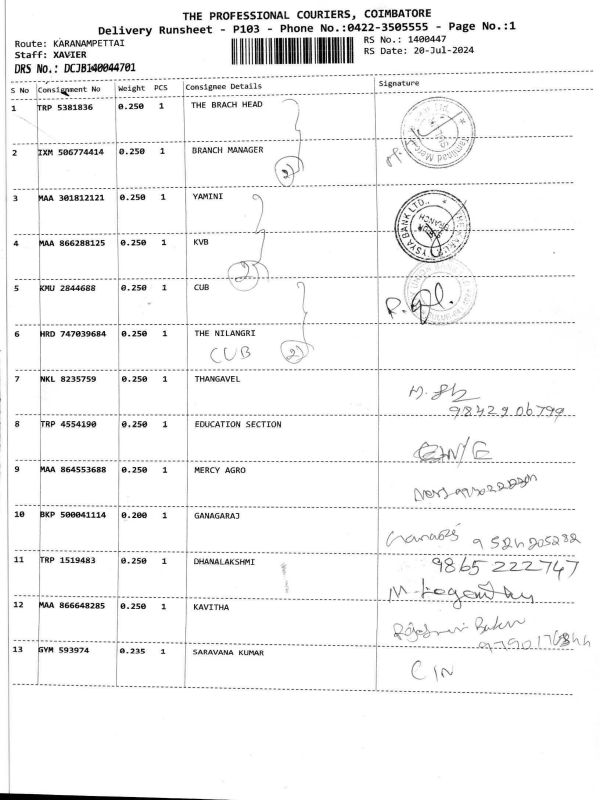 THE PROFESSIONAL COURIERS, COIMBATORE
Delivery Runsheet - P103 - Phone No.:0422-3505555 - Page No.:1
Route: KARANAMPETTAI
RS No.: 1400447
Staff: XAVIER
RS Date: 20-Jul-2024
DRS No.: DCJB140044701
S No Consignment No Weight PCS Consignee Details Signature
1 TRP 5381836 0.250 1 THE BRACH HEAD
2 IXM 506774414 0.250 1 BRANCH MANAGER
2)
3 MAA 301812121 0.250 1 YAMINI
4 MAA 866288125 0.250 1 KVB
2)
5 KMU 2844688 0.250 1 CUB
6 HRD 747039684 0.250 1 THE NILANGRI
CUB 2)
7 NKL 8235759 0.250 1 THANGAVEL
98429 06799
8 TRP 4554190 0.250 1 EDUCATION SECTION
9 MAA 864553688 0.250 1 MERCY AGRO
10 BKP 500041114 0.200 1 GANAGARAJ
11 TRP 1519483 0.250 1 DHANALAKSHMI
9865 222747
12 MAA 866648285 0.250 1 KAVITHA
13 GYM 593974 0.235 1 SARAVANA KUMAR